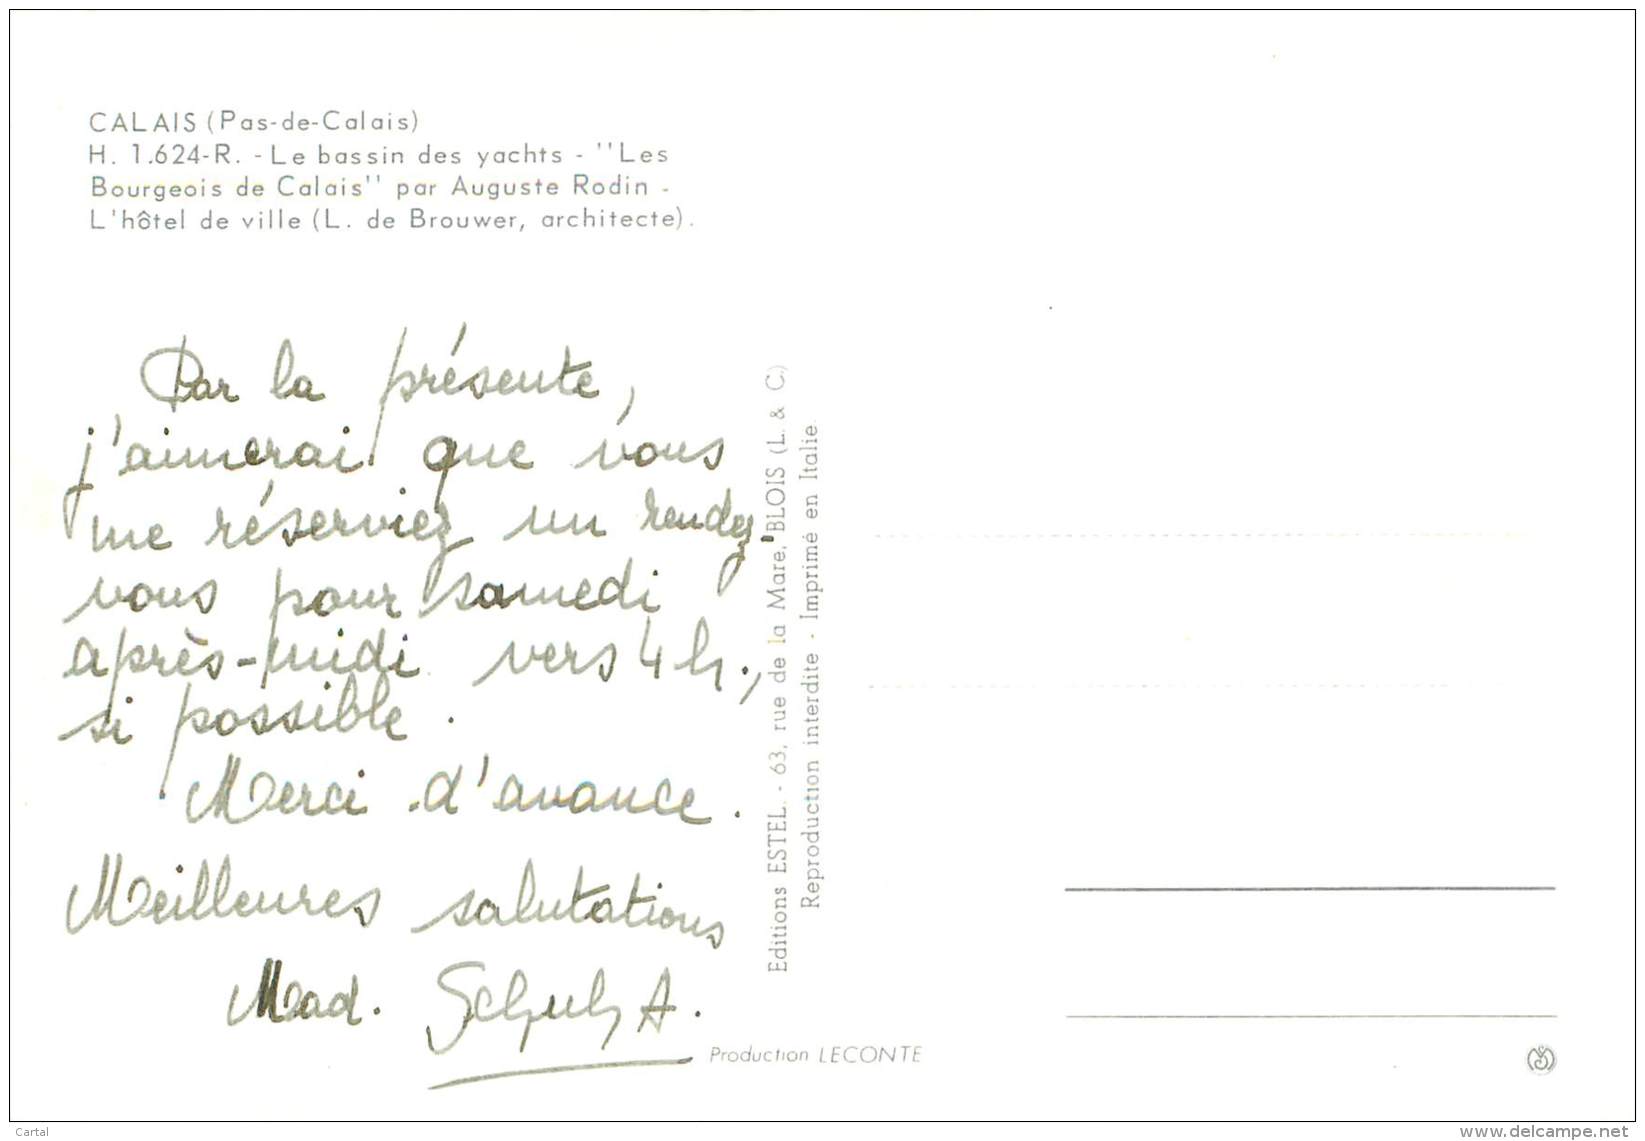 CALAIS (Pas-de-Calais)
H. 1.624-R. - Le bassin des yachts - ''Les
Bourgeois de Calais'' par Auguste Rodin -
L'hôtel de ville (L. de Brouwer, architecte).
Par la présente,
j'aimerai que vous
me réserviez un rendez-
vous pour samedi
après-midi vers 4 h.,
si possible.
Merci d'avance.
Meilleures salutations
Mad. Schulz A.
Editions ESTEL. - 63, rue de la Mare, BLOIS (L. & C.)
Reproduction interdite - Imprimé en Italie
Production LECONTE
Cartal
www.delcampe.net